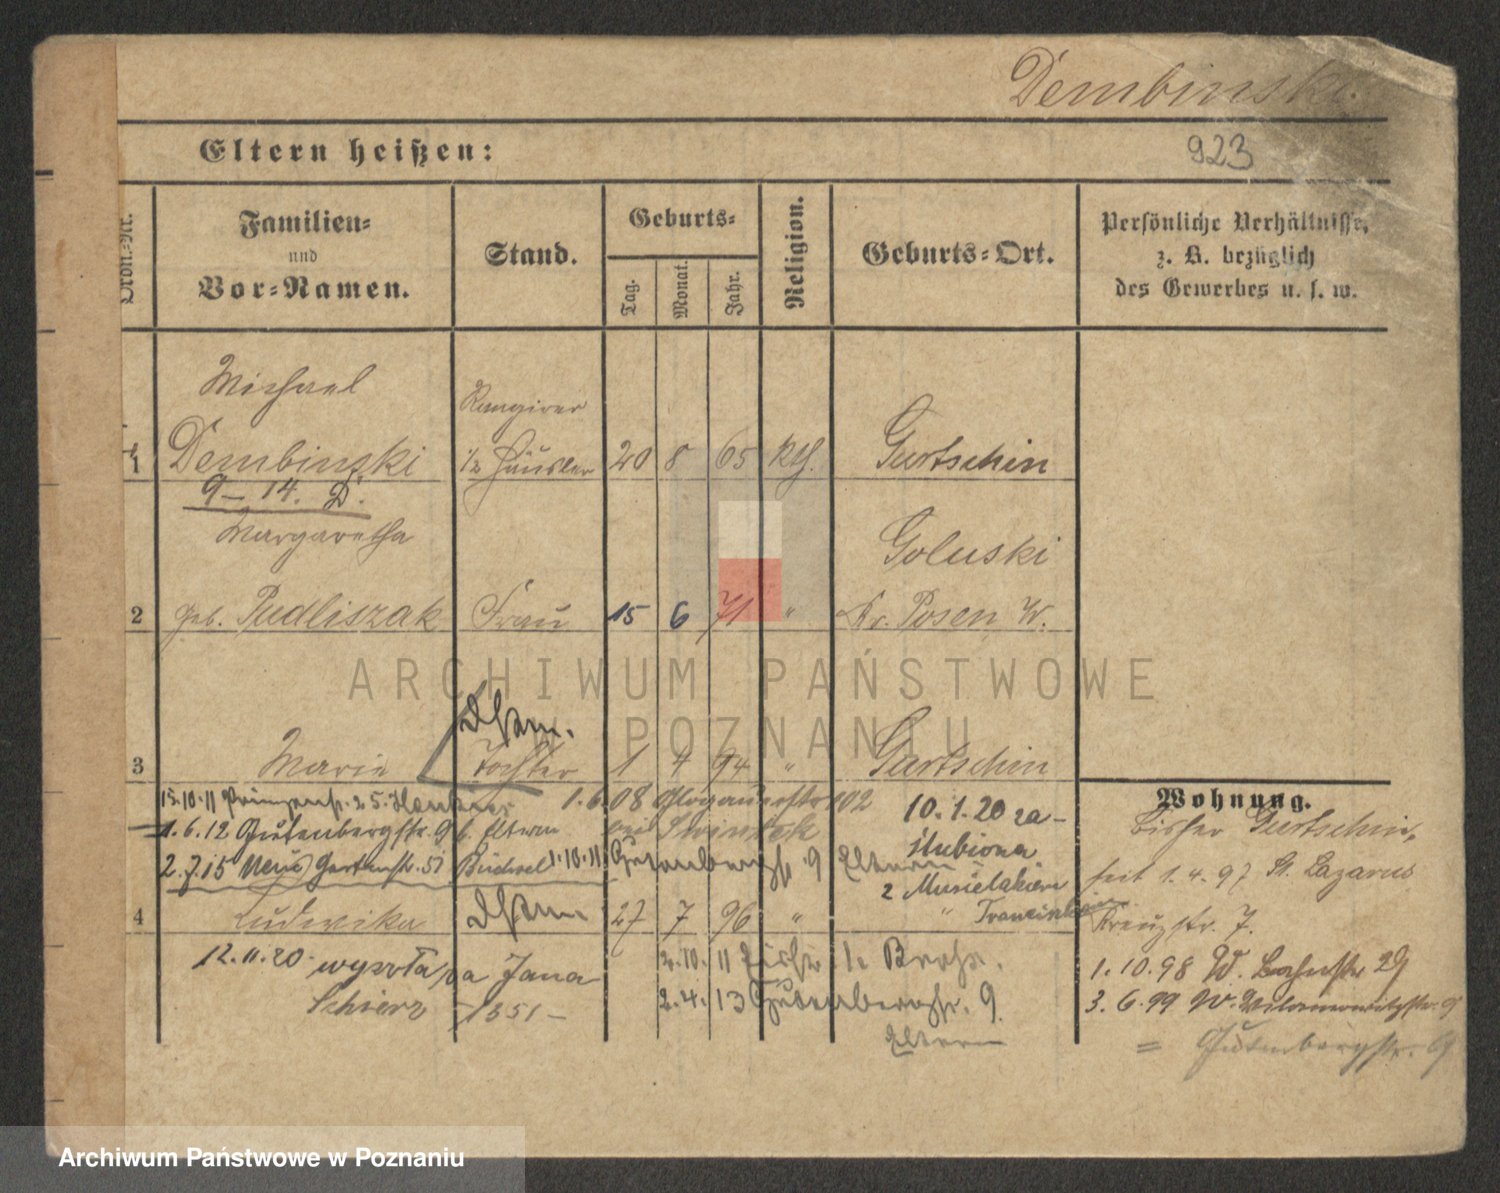 Dembinski.
923
Eltern heißen:
Ordn.-Nr.
Familien-
und
Vor-Namen.
Stand.
Geburts-
Tag.
Monat.
Jahr.
Religion.
Geburts-Ort.
Persönliche Verhältnisse,
z. B. bezüglich
des Gewerbes u. s. w.
Michael
Rangirer
1 Dembinski Häusler 20 8 65 Kth. Gurtschin
9 – 14. D.
Margaretha
Goluski
2 geb. Pudliszak Frau 15 6 71 " Kr. Posen W.
3 Marie Tochter 1 4 94 " Gurtschin
15.10.11 1.6.08 Glogauerstr 102
10.1.20 za-
ślubiona
1.6.12 Gutenbergstr. 9 b. Eltern
2.7.15 Neue Gartenstr. 51 1.10.11 Gutenbergstr. 9 Eltern
4 Ludwika 27 7 96 "
12.11.20. Jana
Schierz 1351 –
2.10.11
2.4.13 Gutenbergstr. 9
Eltern
Wohnung.
bisher Gurtschin,
seit 1.4.97 St. Lazarus
Kreuzstr. 7.
1.10.98 W. Bahnstr 29
3.6.99 W.
= Gutenbergstr. 9
ARCHIWUM PAŃSTWOWE
W POZNANIU
Archiwum Państwowe w Poznaniu